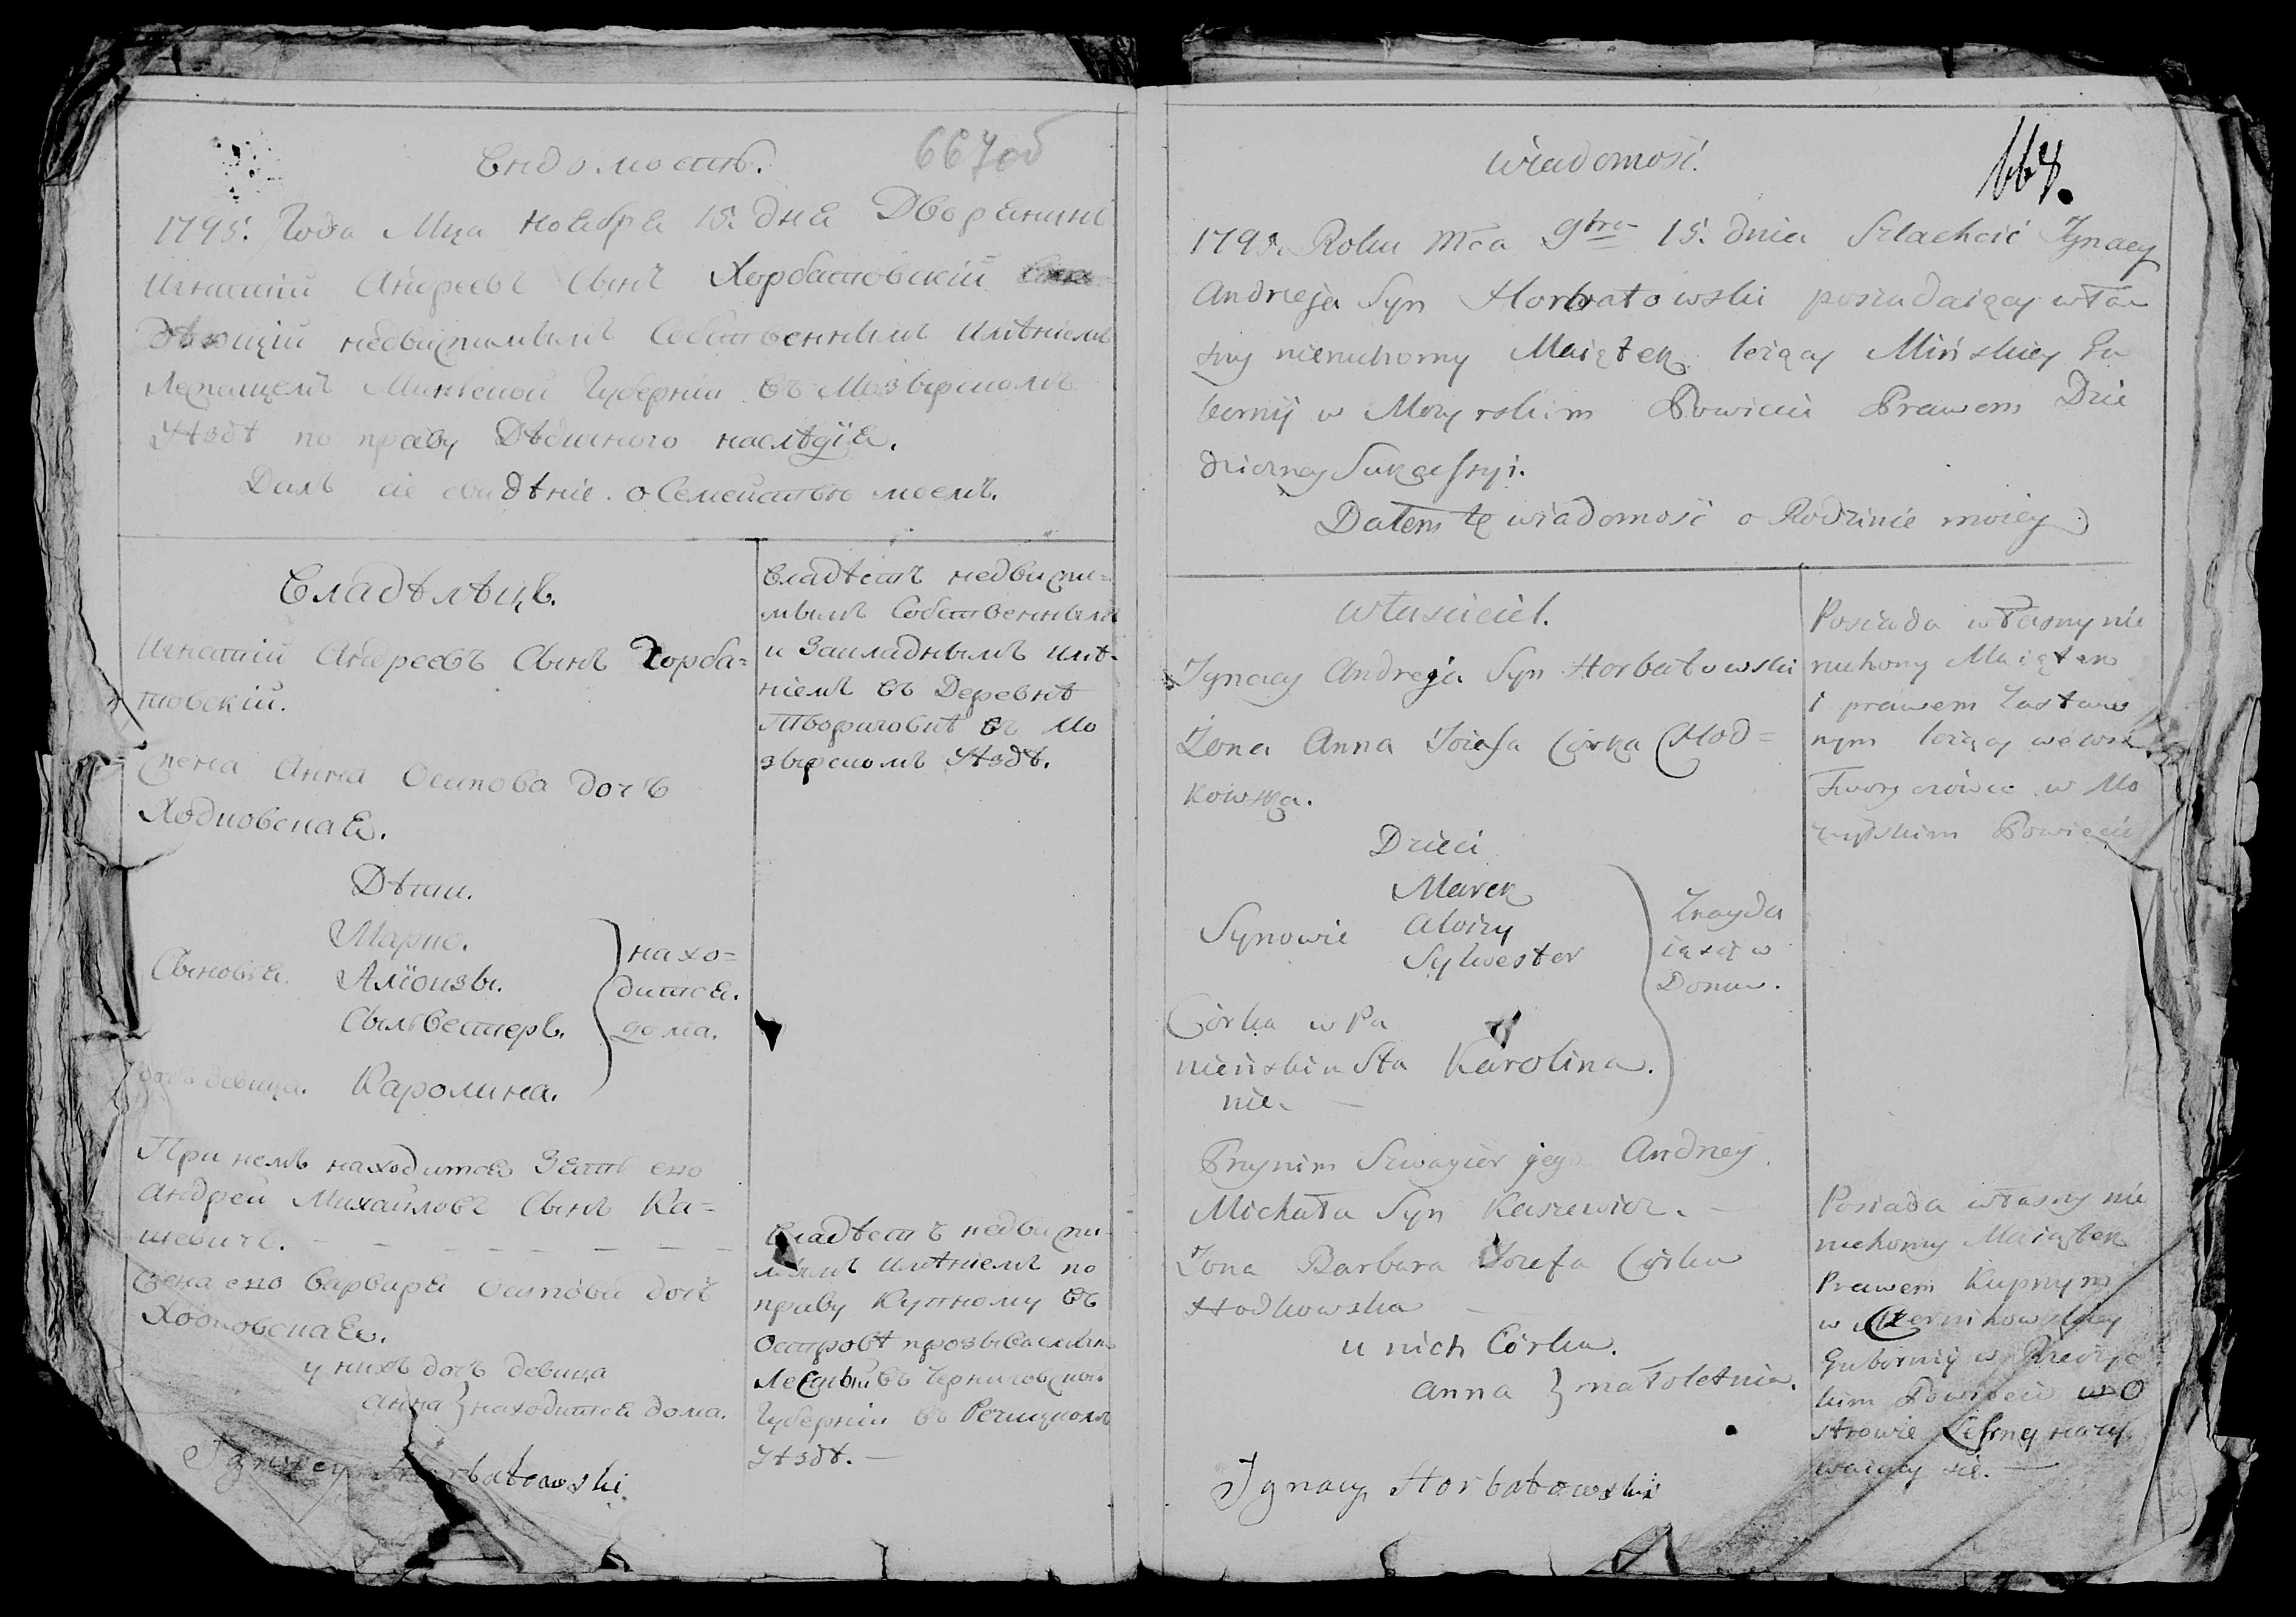 667об
Вѣдомость.
1795. Года Мца Ноября 15. дня Дворянинъ
Игнатій Андреевъ Сынъ Хорбатовскій
недвижимымъ Собственнымъ Имѣніемъ
Лежащемъ Минской Губерніи въ Мозырскомъ
Уѣздѣ по праву Дѣдичного наслѣдїя.
Далъ сіе свидѣніе о Семействѣ моемъ.
Владѣлѣцъ.
Игнатій Андреевъ Сынъ Хорба=
товскій.
жена Анна Осипова дочь
Ходковская.
Дѣти.
Марко.
Сыновья. Алїоизы.
Сыльвестеръ.
нахо=
дитса.
дома.
дочь девица. Каролина.
При немъ находится Зять его
Андрей Михайловъ Сынъ Ка=
шевичъ. — — — — — — —
Жена его Варвара Осипова дочь
Ходковская.
у нихъ дочь девица
Анна } находится дома.
Ignacy Horbatowski
Владѣетъ недвижи=
мымъ Собственнымъ
и Закладнымъ имѣ-
ніемъ въ Деревнѣ
Творичовкѣ въ Мо
зырскомъ Уѣздѣ.
Владѣетъ недвижи-
мымъ имѣніемъ по
праву Купному въ
Островѣ прозываемомъ
Лесный въ Черниговской
Губерніи въ Речицкомъ
Уѣздѣ. —
668.
Wiadomość.
1795. Roku Mca 9bra 15. dnia Szlachcic Jgnacy
Andrzeja Syn Horbatowski posiadaiący włas
sny nieruchomy Maiątek leżący Mińskiey Gu
bernij w Mozyrskim Powiecie Prawem Dzie
dzicznej Sukcessyi.
Dałem tę wiadomość o Rodzinie moiey
Właściciel.
Jgnacy Andrzeja Syn Horbatowski
Żona Anna Józefa Córka Chod=
kowska.
Dzieci
Marek
Synowie Aloizy
Sylwester
Znayda
ią się w
Domu.
Córka w Pa
nieńskim Sta Karolina.
nie. —
Przy nim Szwagier jego Andrzey
Michała Syn Kaszewicz. —
Żona Barbara Józefa Córka
Hodkowska —
u nich Córka.
Anna } małoletnia.
Jgnacy Horbatowski
Posiada własny nie
ruchomy Maiątek
i prawem Zastaw
nym leżący we wsi
w Mo
zyrskim Powiecie
Posiada własny nie
ruchomy Maiątek
Prawem Kupnym
w Czernihowskiey
Gubernij w Rzeczyc
kim Powiecie w O
strowie Leśney nazy
waiący się. —